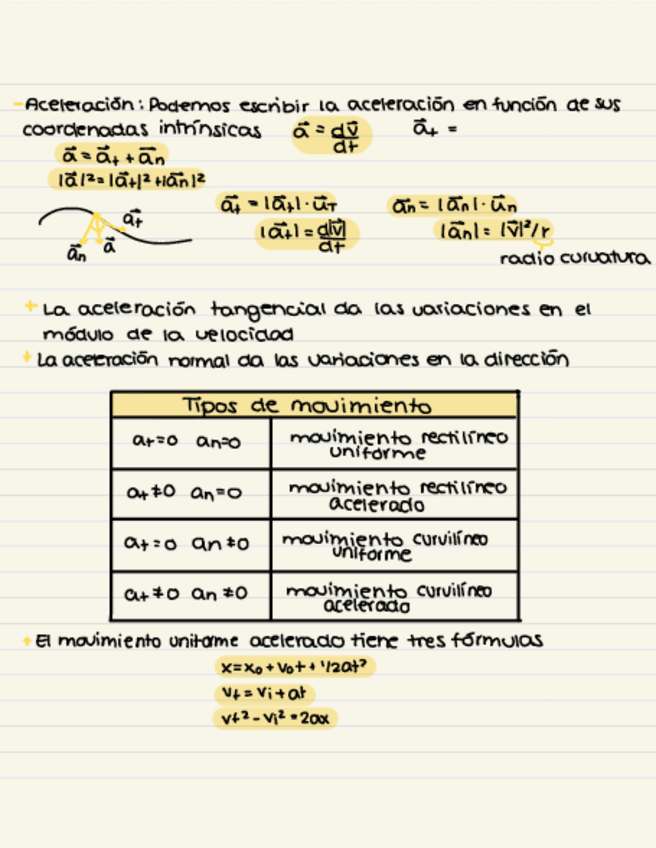 -Aceleración: Podemos escribir la aceleración en función de sus
coordenadas intrínsicas a⃗ = dv⃗/dt a⃗t =
a⃗ = a⃗t + a⃗n
|a⃗|² = |a⃗t|² + |a⃗n|²
a⃗t = |a⃗t| · u⃗T a⃗n = |a⃗n| · u⃗n
|a⃗t| = d|v⃗|/dt |a⃗n| = |v⃗|²/r
a⃗t
a⃗n a⃗
radio curvatura
+ La aceleración tangencial da las variaciones en el
módulo de la velocidad
+ La aceleración normal da las variaciones en la dirección
Tipos de movimiento
at=0 an=0 movimiento rectilíneo
uniforme
at≠0 an=0 movimiento rectilíneo
acelerado
at=0 an≠0 movimiento curvilíneo
uniforme
at≠0 an≠0 movimiento curvilíneo
acelerado
+ El movimiento uniforme acelerado tiene tres fórmulas
x=x₀+v₀t+1/2at²
vf=vi+at
vf²-vi²=2ax